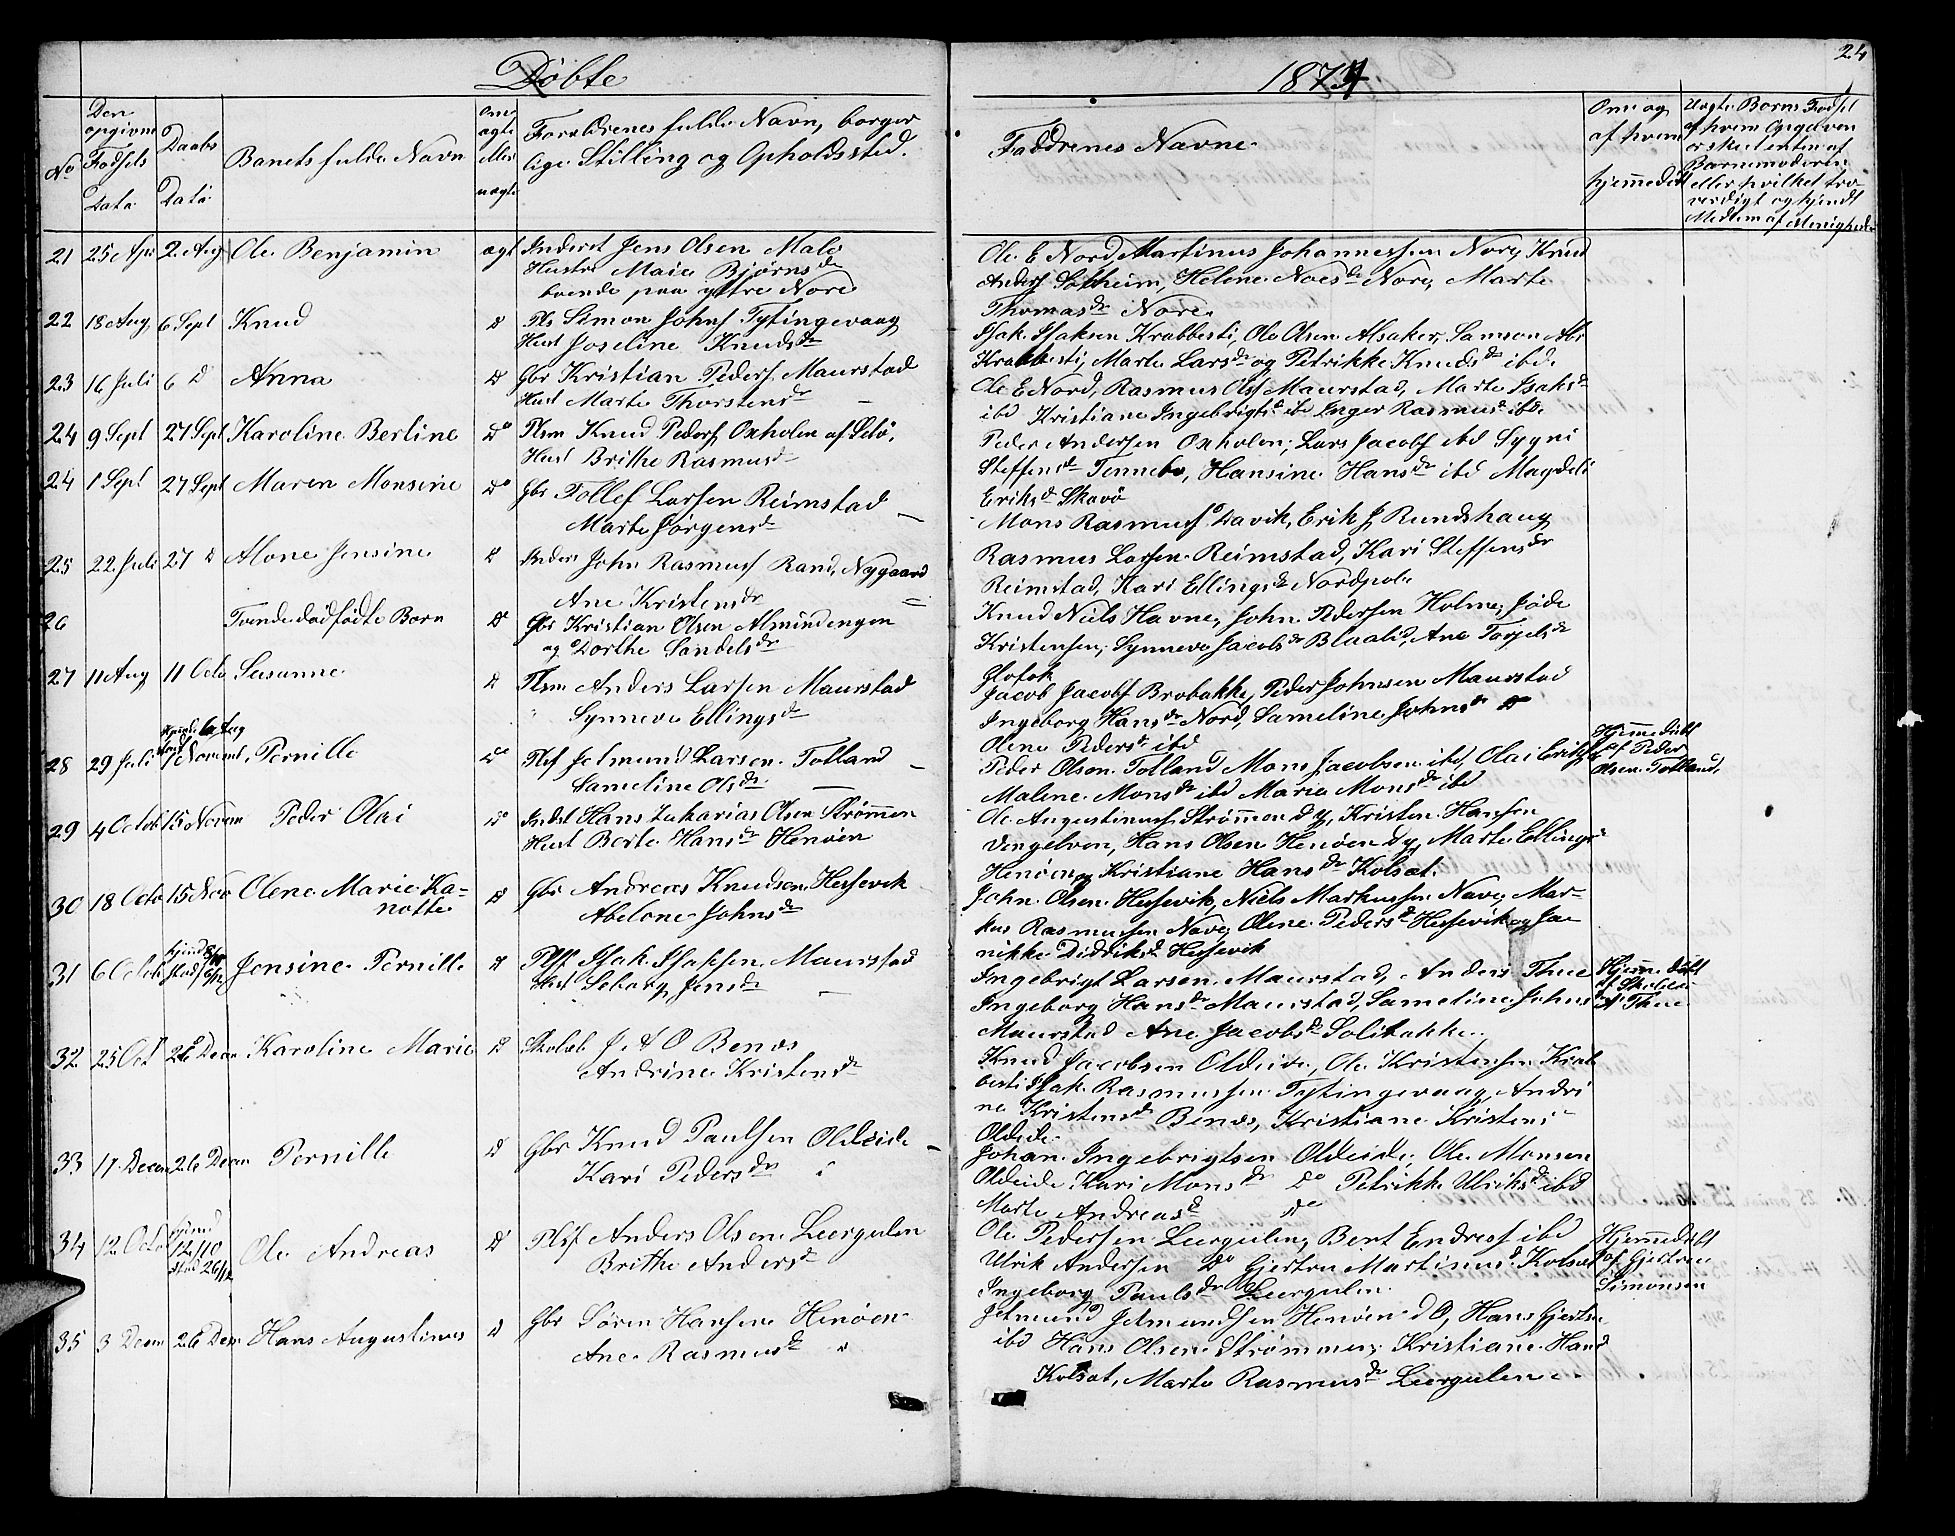 Døbte
1874
24
No
Den opgivne Fødsels Data
Daabs Datä
Barnets fulde Navn
Om ægte eller uægte
Forældrenes fulde Navn, borger
lige Stilling og Opholdssted.
Faddrenes Navne
Om og af hvem hjemmedøbt
Uægte Børns Fødsel
af hvem Opgaven
er skeet enten af
Barnemoderen
eller hvilket tro-
værdigt og kjendt
Medlem af Menigheden
21 25 Apr 2 Aug Ole Benjamin ægt Inderst Jens Olsen Male
Hustru Marie Bjørnsdr
boende paa ytre Nore
Ole E Nord, Martinus Johannessen Nore, Knud
Anders Solheim, Helene Noesdr Nore, Marte
Thomasdr Nore
22 18 Aug 6 Sept Knud d Pls Simon Johns Tytingevaag
Hust Joseline Knudsdr
Isak Isaksen Krabbesti, Ole Olsen Alsaker, Samson Abr
Krabbesti, Marte Larsdr og Petrikke Knudsdr ibd
23 16 Juli 6 d Anna d Gbr Kristian Peders Maurstad
Hust Marte Thorstensdr
Ole E Nord, Rasmus Ols Maurstad, Marte Isaksdr
ibd Kristiane Ingebrigtsdr ibd Inger Rasmusdr ibd
24 9 Sept 27 Sept Karoline Berline do Plsm Knud Peders Oxholm af Selø,
Hust Brithe Rasmusdr
Peder Andersen Oxholm, Lars Jacobs ibd Sygni
Steffensdr Tennebø, Hansine Hansdr ibd Magdeli
Eriksdr Skavø
24 1 Sept 27 Sept Maren Monsine do Gbr Tollef Larsen Reimstad
Marte Jørgensdr
Mons Rasmuss Davik, Erik J Rundshaug
Rasmus Larsen Reimstad, Kari Steffensdr
Reimstad, Kari Ellingsdr Nordpole
25 22 Juli 27 d Alone Jensine d Inders John Rasmuss Rand, Nygaard
Ane Kristensdr
Knud Niels Havne, John Pedersen Holme, Jøde
Kristensen, Synneve Jacobsdr Blaalid, Ane Torjelsdr
26 Tvende dødfødte Børn d Gbr Kristian Olsen Almindengen
og Dorthe Sandelsdr
27 11 Aug 11 Octo Susanne d Plsm Anders Larsen Maurstad
Synneve Ellingsdr
Jacob Jacobs Brobakke, Peder Johnsen Maurstad
Ingeborg Hansdr Nord, Sameline Johnsdr do
Olene Pedersdr ibd
28 29 Juli 1 Novemb Pernille do Pls Jetmund Larsen Totland
Sameline Olsdr
Peder Olsen Totland Mons Jacobsen ibd, Olai Eriks
Malene Monsdr ibd Maria Monsdr ibd
Hjemmedøbt
af Peder
Olsen Totland,
29 4 Octob 15 Novem Peder Olai do Indst Hans Zakarias Olsen Strømmen
Hust Berte Hansdr Henøen
Ole Augustinus Strømmen d y, Kristen Hansen
Dingelven, Hans Olsen Henøen dy, Marte Ellingsdr
Henøen og Kristiane Hansdr Kolset.
30 18 Octo 15 Nov Olene Marie Ka-
notte
d Gbr Andreas Knudsen Hessevik
Abelone Johnsdr
John Olsen Hessevik, Niels Markussen Nave, Mar-
kus Rasmussen Nave, Olene Pedersdr Hessevik og Ja-
nikke Didriksdr Hessevik
31 6 Octob Jensine Pernille d Plsf Isak Isaksen Maurstad
Hust Seborg Jensdr
Ingebrigt Larsen Maurstad, Anders Thue
Ingeborg Hansdr Maurstad, Sameline Johnsdr
Maurstad Ane Jacobsdr Solibakke
Hjemmedøbt
af Skolelær
A Thue
32 25 Oct 26 Decem Karoline Marie d Skolelr J A O Benes
Andrine Kristensdr
Knud Jacobsen Oldeide, Ole Kristensen Krab
besti Isak Rasmussen Tytingevaag, Andri
ne Kristensdr Benes, Kristiane Kristensdr
Oldeide
33 17 Decem 26 Decem Pernille d Gbr Knud Paulsen Oldeide
Kari Pedersdr
Johan Ingebrigtsen Oldeide, Ole Monsen
Oldeide Kari Monsdr do Petrikke Ulriksdr ibd
Marte Andreasdr do
34 12 Octo hjemd 12/10 sted 26/12 Ole Andreas d Plsf Anders Olsen Leergulen
Brithe Andersdr
Ole Pedersen Leergulen, Bent Endress ibd
Ulrik Andersen do Gjertru Martinusdr Kolset
Ingeborg Paulsdr Leergulen
Hjemmedøbt
af Gjertrue
Simonsen
35 3 Decem 26 Decm Hans Augustinus d Gbr Søren Hansen Henøen
Ane Rasmusdr
Jetmund Jetmundsen Henøen d O, Hans Gjertsen
ibd Hans Olsen Strømmen, Kristiane Hansd
Kolset, Marte Rasmusdr Leergulen